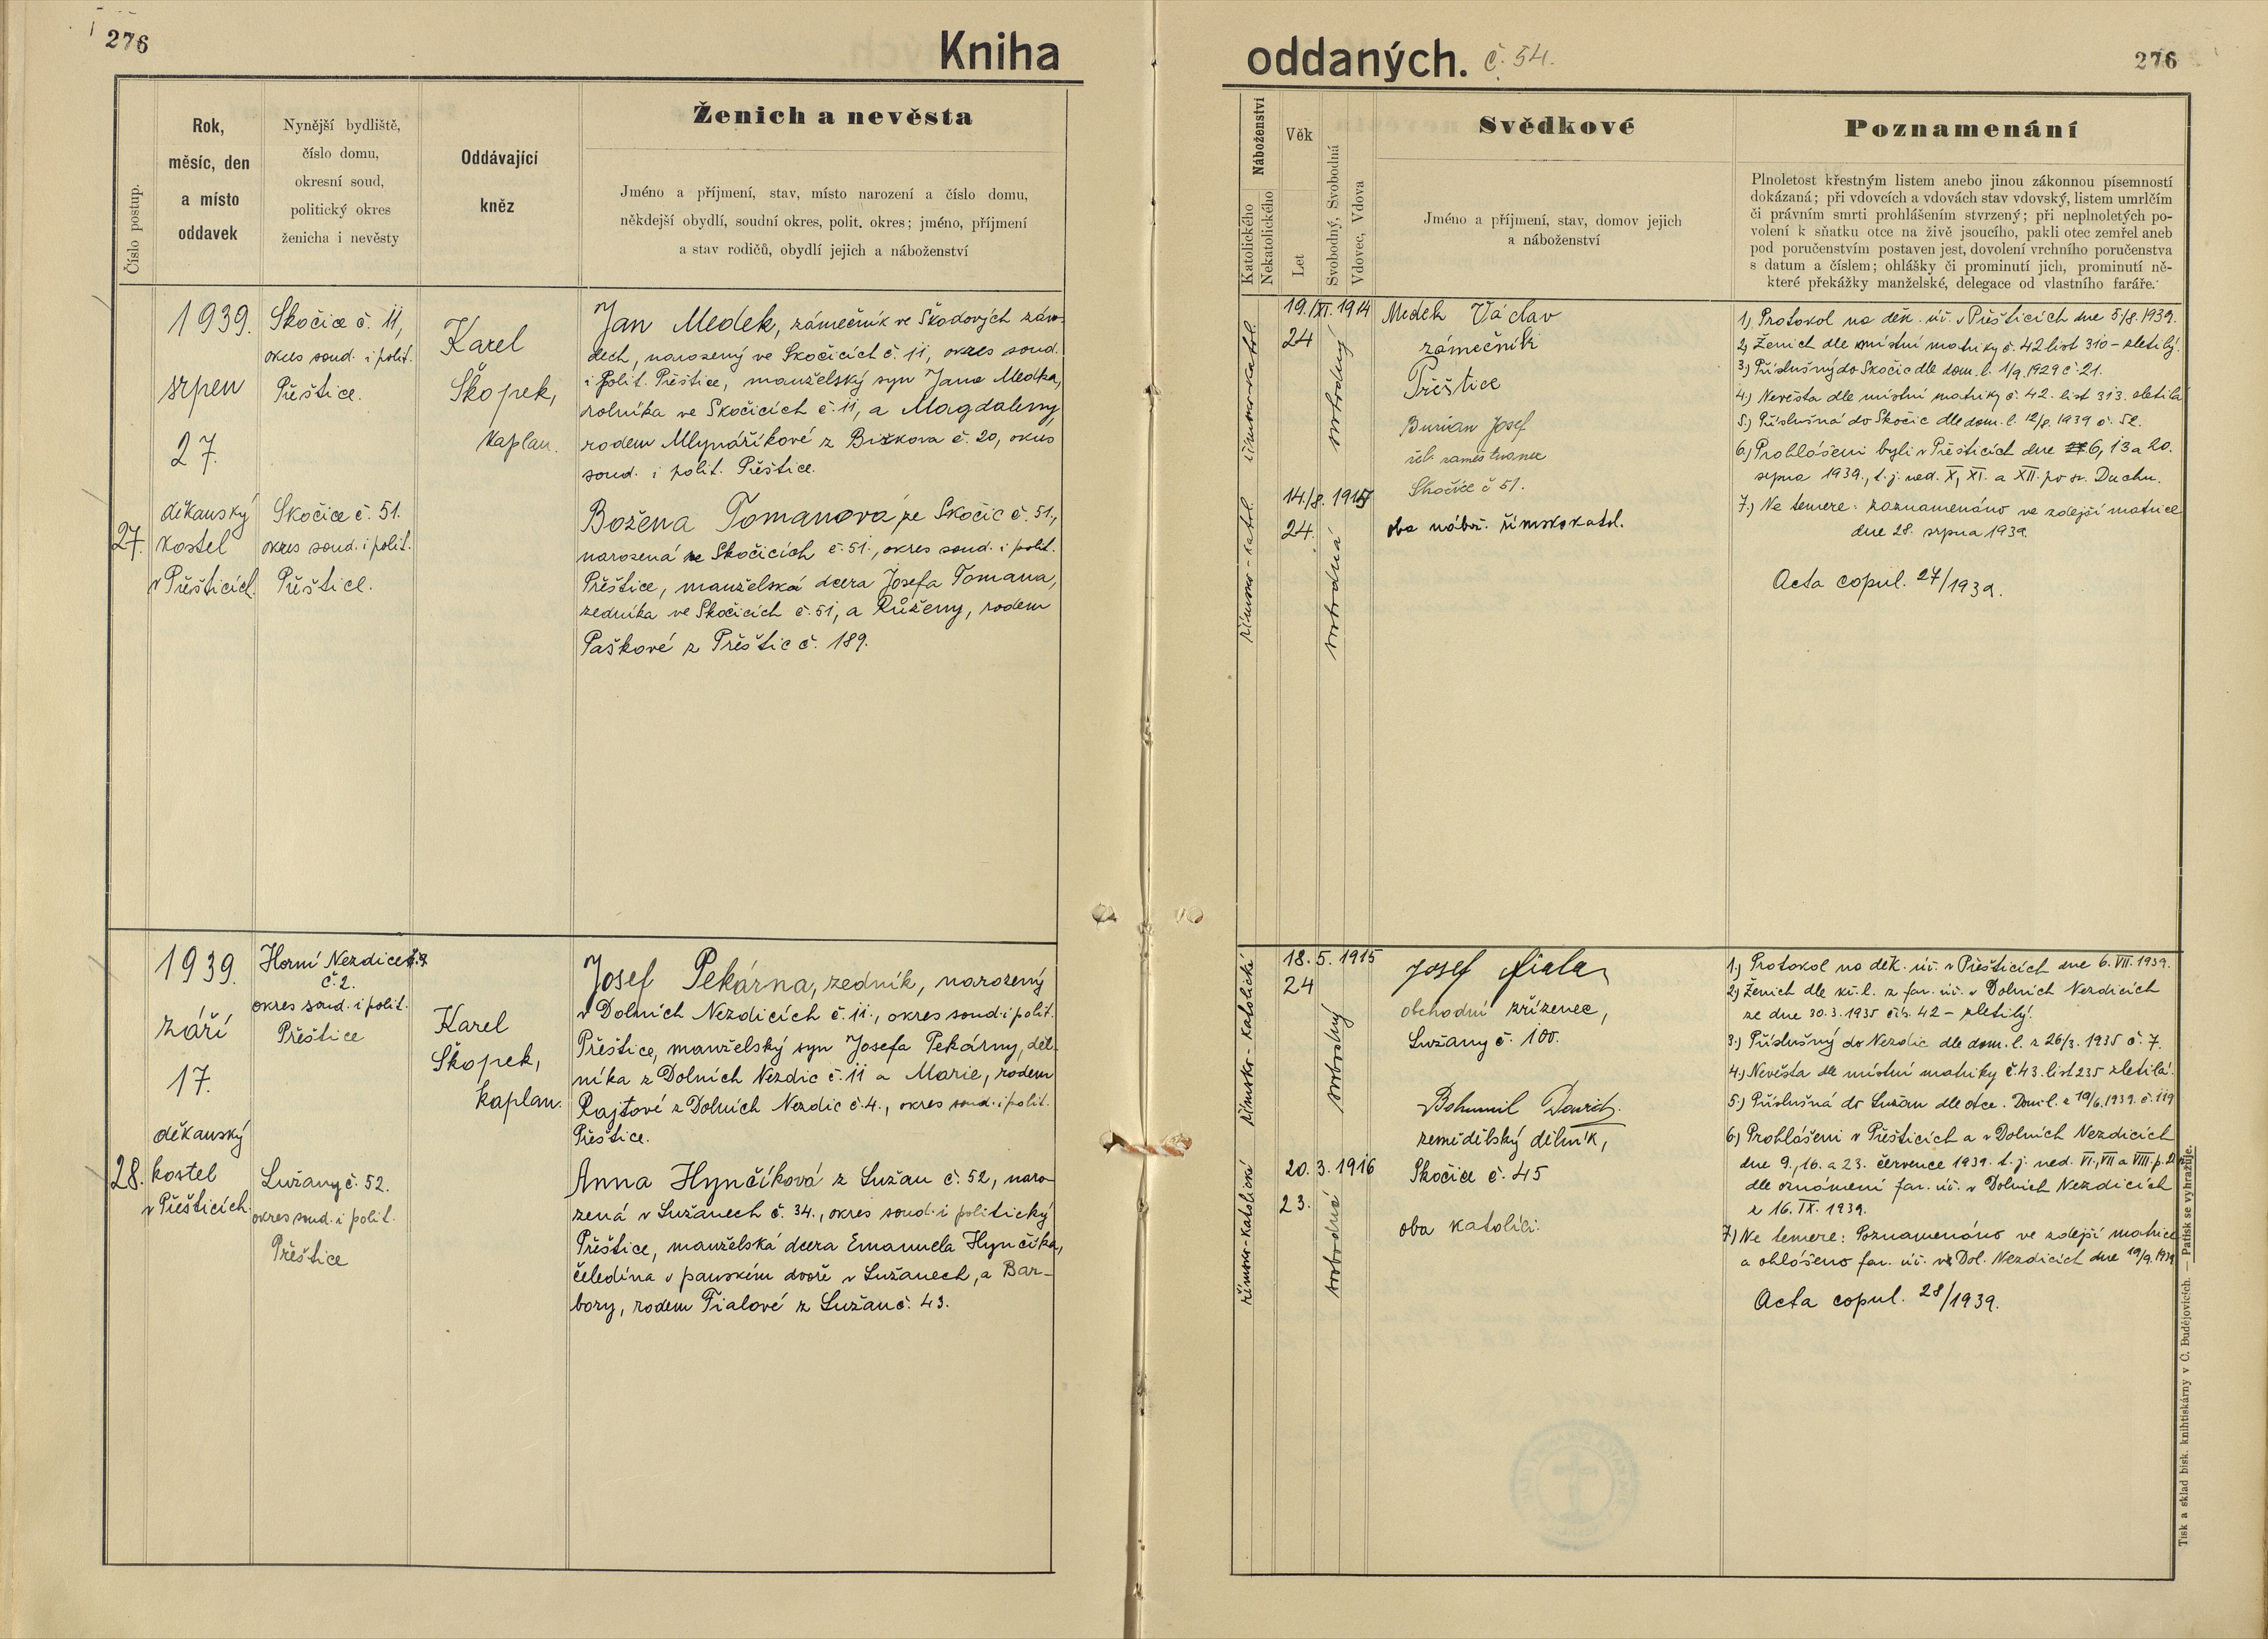 276
Kniha
oddaných. č. 54.
276
Číslo postup.
Rok,
měsíc, den
a místo
oddavek
Nynější bydliště,
číslo domu,
okresní soud,
politický okres
ženicha i nevěsty
Oddávající
kněz
Ženich a nevěsta
Jméno a příjmení, stav, místo narození a číslo domu,
někdejší obydlí, soudní okres, polit. okres; jméno, příjmení
a stav rodičů, obydlí jejich a náboženství
Náboženství
Katolického
Nekatolického
Věk
Let
Svobodný, Svobodná
Vdovec, Vdova
Svědkové
Jméno a příjmení, stav, domov jejich
a náboženství
Poznamenání
Plnoletost křestným listem anebo jinou zákonnou písemností
dokázaná; při vdovcích a vdovách stav vdovský, listem umrlčím
či právním smrti prohlášením stvrzený; při neplnoletých po-
volení k sňatku otce na živě jsoucího, pakli otec zemřel aneb
pod poručenstvím postaven jest, dovolení vrchního poručenstva
s datum a číslem; ohlášky či prominutí jich, prominutí ně-
které překážky manželské, delegace od vlastního faráře.
27.
1939.
srpen
27.
děkanský
kostel
v Přešticích.
Skočice č. 11,
okres soud. i polit.
Přeštice.
Skočice č. 51.
okres soud. i polit.
Přeštice.
Karel
Škopek,
kaplan.
Jan Medek, zámečník ve Škodových závo-
dech, narozený ve Skočicích č. 11, okres soud.
i polit. Přeštice, manželský syn Jana Medka,
rolníka ve Skočicích č. 11, a Magdaleny
rodem Mlynáříkové z Bizkova č. 20, okres
soud. i polit. Přeštice.
Božena Tomanová, ze Skočic č. 51.,
narozená ve Skočicích č. 51., okres soud. i polit.
Přeštice, manželská dcera Josefa Tomana,
zedníka ve Skočicích č. 51, a Růženy, rodem
Paškové z Přeštic č. 189.
římsko-katol.
římsko-katol.
19./XI. 1914
24
14./8. 1915
24.
svobodný
svobodná
Medek Václav
zámečník
Přeštice
Burian Josef
zaměstnanec
Skočice č 51.
oba nábož. římskokatol.
1.) Protokol na děk. úř. v Přešticích dne 5/8. 1939.
2) Ženich dle místní matriky č. 42 list 310 – zletilý.
3.) Příslušný do Skočic dle dom. l. 1/9. 1929 č. 21.
4.) Nevěsta dle místní matriky č. 42. list 313. zletilá
5.) Příslušná do Skočic dle dom. l. 12/8. 1939 č. 52.
6.) Prohlášeni byli v Přešticích dne 6, 13 a 20.
srpna 1939., t. j. ned. X, XI. a XII. po sv. Duchu.
7.) Ne temere: zaznamenáno ve zdejší matrice
dne 28. srpna 1939.
Acta copul. 27/1939.
28.
1939.
září
17.
děkanský
kostel
v Přešticích.
Horní Nezdice
č. 2.
okres soud. i polit.
Přeštice
Lužany č. 52.
okres soud. i polit.
Přeštice
Karel
Škopek,
kaplan.
Josef Pekárna, zedník, narozený
v Dolních Nezdicích č. 11., okres soud. i polit.
Přeštice, manželský syn Josefa Pekárny, děl-
níka z Dolních Nezdic č. 11 a Marie, rodem
Rajtové z Dolních Nezdic č. 4., okres soud. i polit.
Přeštice.
Anna Hynčíková z Lužan č. 52, naro-
zená v Lužanech č. 34., okres soud. i politický
Přeštice, manželská dcera Emanuela Hynčíka,
čeledína v panském dvoře v Lužanech, a Bar-
bory, rodem Fialové z Lužan č. 43.
římsko-katolické
římsko-katolické
18. 5. 1915
24
20. 3. 1916
23.
svobodný
svobodná
Josef Fiala
obchodní zřízenec,
Lužany č. 100.
Bohumil
zemědělský dělník,
Skočice č. 45
oba katolíci.
1.) Protokol na děk. úř. v Přešticích dne 6. VII. 1939.
2) Ženich dle kř. l. z far. úř. v Dolních Nezdicích
ze dne 30. 3. 1935 čís. 42 – zletilý.
3.) Příslušný do Nezdic dle dom. l. z 26/3. 1935 č. 7.
4.) Nevěsta dle místní matriky č. 43. list 235 zletilá.
5.) Příslušná do Lužan dle otce. Dom. l. z 19/6. 1939. č. 119
6.) Prohlášeni v Přešticích a v Dolních Nezdicích
dne 9., 16. a 23. července 1939. t. j. ned. VI., VII a VIII. p. D.
dle oznámení far. úř. v Dolních Nezdicích
z 16. IX. 1939.
7.) Ne temere: Poznamenáno ve zdejší matrice
a ohlášeno far. úř. v Dol. Nezdicích dne 19/9. 1939
Acta copul. 28/1939.
Tisk a sklad bisk. knihtiskárny v Č. Budějovicích. — Patisk se vyhražuje.